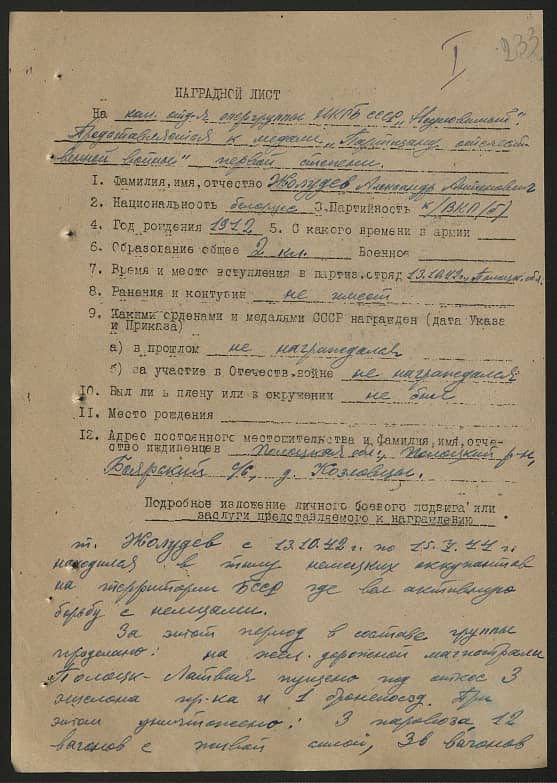 I
233
НАГРАДНОЙ ЛИСТ
На ком. отд-я опергруппы НКГБ СССР „Неуловимый"
Представляется к медали „Партизану отечест
венной войны" первой степени.
I. Фамилия,имя,отчество Жолудев Александр Антонович
2. Национальность белорус 3.Партийность к/ВКП(б)
4. Год рождения 1912 5. С какого времени в армии
6. Образование общее 2 кл. Военное
7. Время и место вступления в партиз.отряд 13.10.42 г. Полоцк. обл.
8. Ранения и контузии не имеет
9. Какими орденами и медалями СССР награжден (дата Указа
и Приказа)
а) в прошлом не награждался
б) за участие в Отечеств.войне не награждался
10. Был ли в плену или в окружении не был
II. Место рождения
12. Адрес постоянного местожительства и фамилия,имя,отче-
ство иждивенцев Полоцкая обл, Полоцкий р-н,
Боярский с/с, д. Козловцы.
Подробное изложение личного боевого подвига или
заслуги представляемого к награждению
т. Жолудев с 13.10.42 г. по 15.V.44 г.
находился в тылу немецких оккупантов
на территории БССР где вел активную
борьбу с немцами.
За этот период в составе группы
проделано: на жел. дорожной магистрали
Полоцк-Латвия пущено под откос 3
эшелона пр-ка и 1 бронепоезд. При
этом уничтожено: 3 паровоза, 12
вагонов с живой силой, 36 вагонов